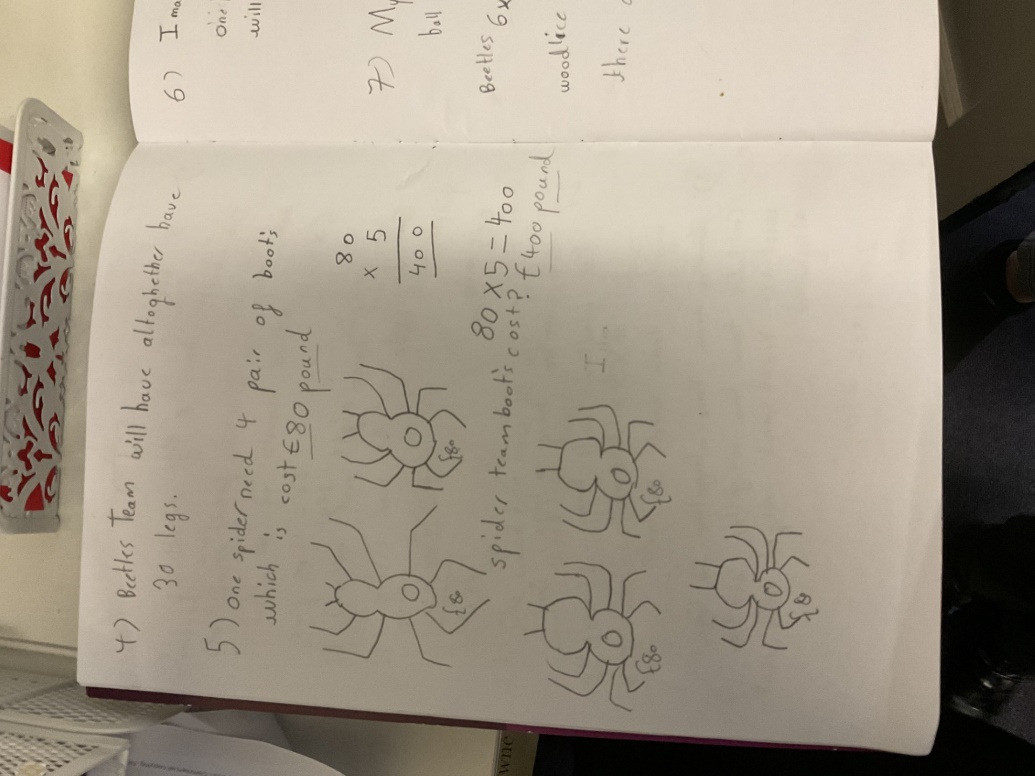 4) Beetles Team will have altoghether have
30 legs.
5) one spider need 4 pair of boots
which is cost £80 pound
80
x 5
400
£80
£80
spider team boots cost? £400 pound
80 x 5 = 400
£80
£80
£8
I
6) I
one
will
7) My
ball
Beetles 6x
woodlice
there